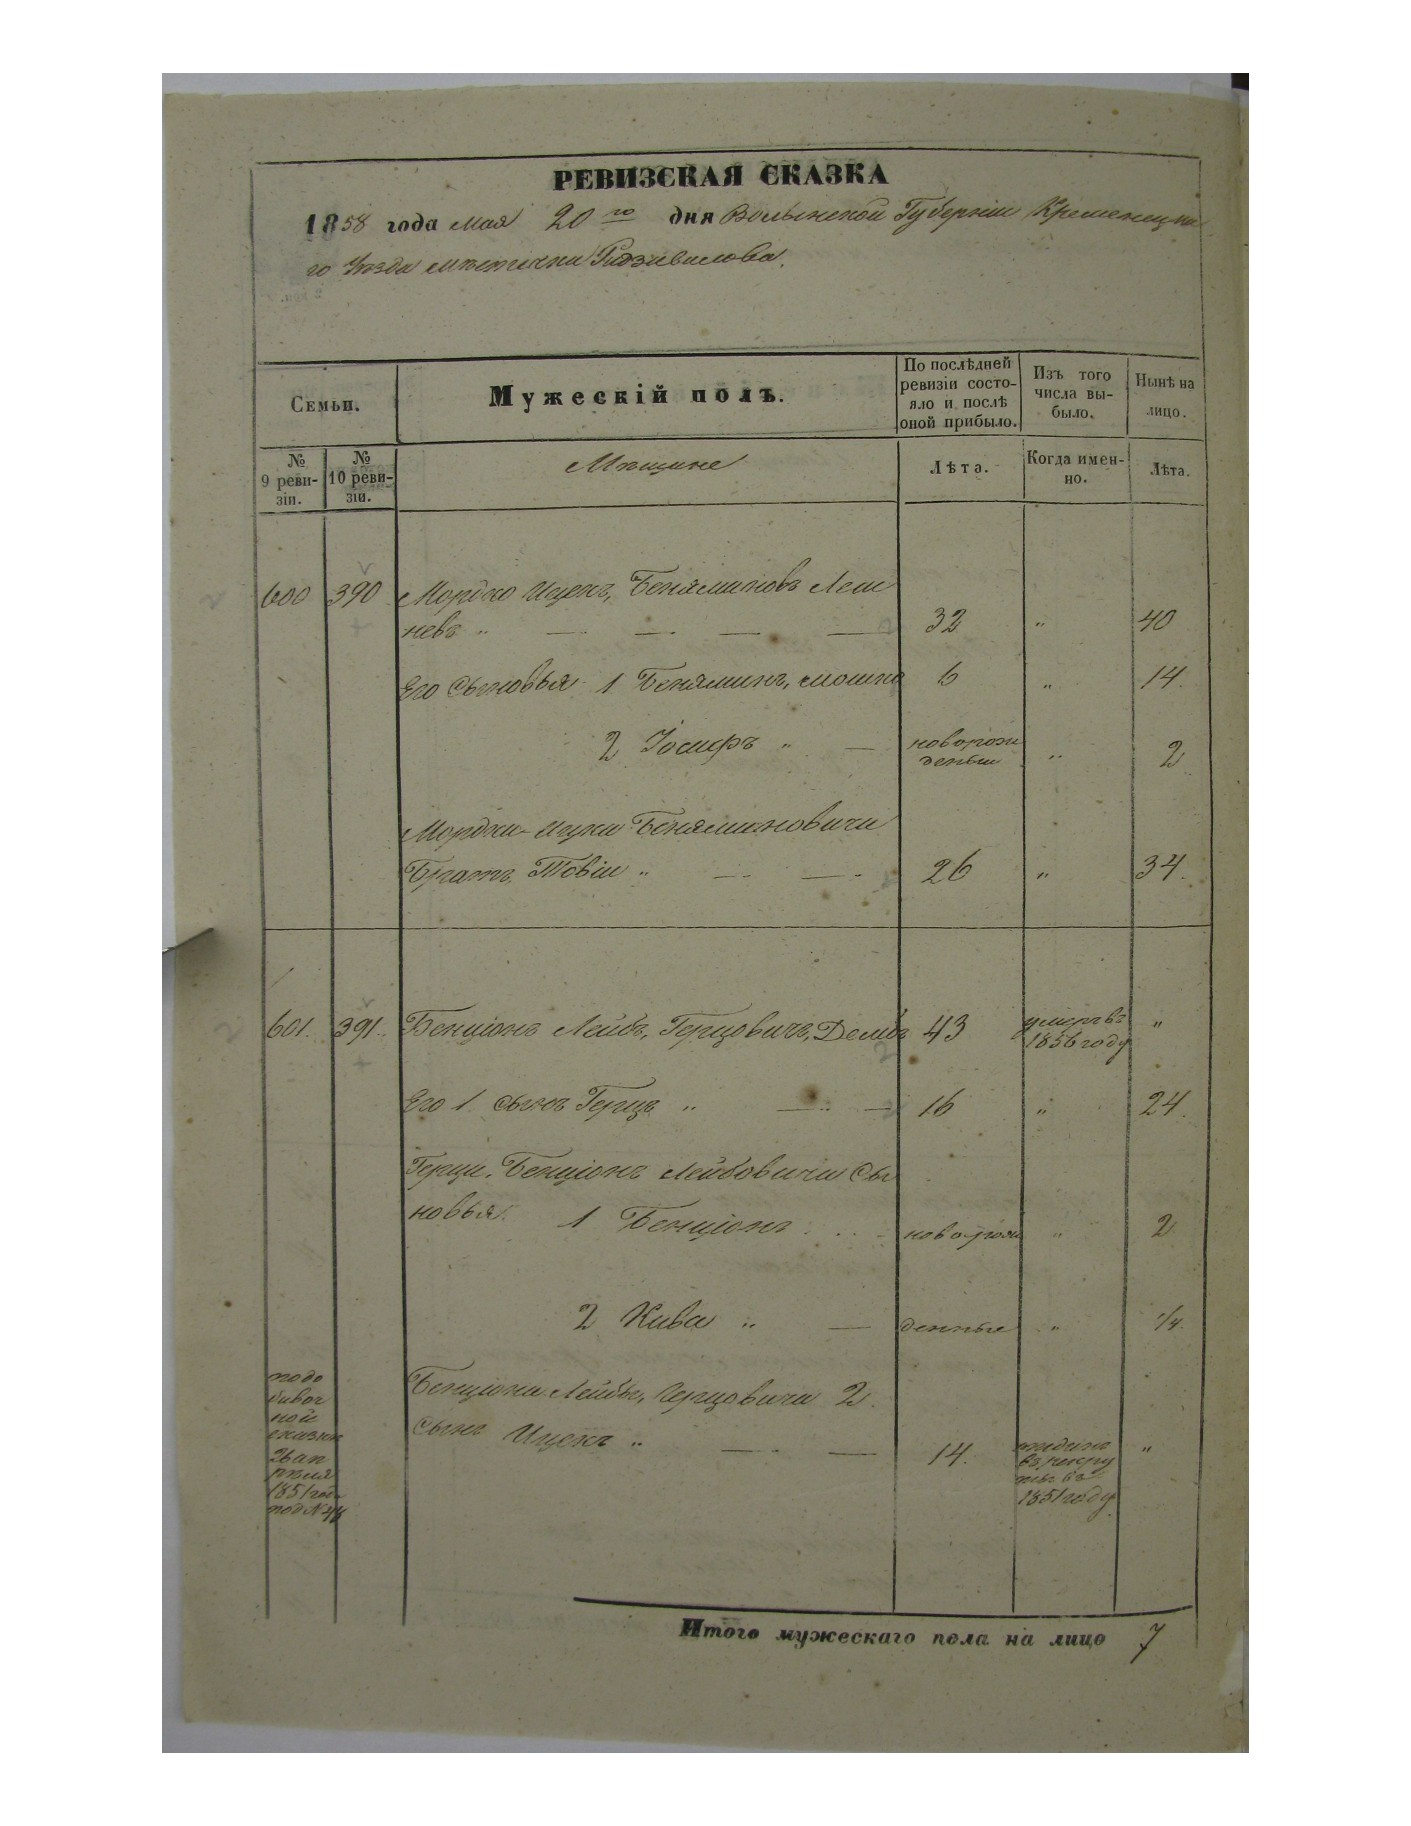 РЕВИЗСКАЯ СКАЗКА
1858 года мая 20го дня Волынской Губернiи Кременецка
го Уѣзда мѣстечка Радзивилова.
Семьи.
Мужескiй полъ.
По послѣдней
ревизiи состо-
яло и послѣ
оной прибыло.
Изъ того
числа вы-
было.
Нынѣ на
лицо.
№
9 реви-
зiи.
№
10 реви-
зiи.
Мѣщане
Лѣта.
Когда имен-
но.
Лѣта.
600 390 Мордко Ицекъ, Беняминовъ Леш
невъ „ 32 „ 40
Его Сыновья 1 Беняминъ, мошко 6 „ 14.
2 Iосифъ „ новорож
денные „ 2
Мордки-Ицки Беняминовичи
Братъ Товiи „ 26 „ 34.
601. 391. Бенцiонъ Лейбъ, Герцовичъ, Дембъ 43 умеръ въ
1856 году „
Его 1. сынъ Герцъ „ 16 „ 24.
Герци. Бенцiонъ Лейбовичи Сы
новья. 1 Бенцiонъ новорож „ 2
2 Кива „ денные „ 1/4.
подо
бивоч
ной
сказки
26 ап
рѣля
1851 год
под №44
Бенцiони-Лейбы, Герцовичи 2.
Сынъ Ицекъ „ 14. отданъ
въ рекру
ты въ
1851 году. „
Итого мужескаго пола на лицо 7